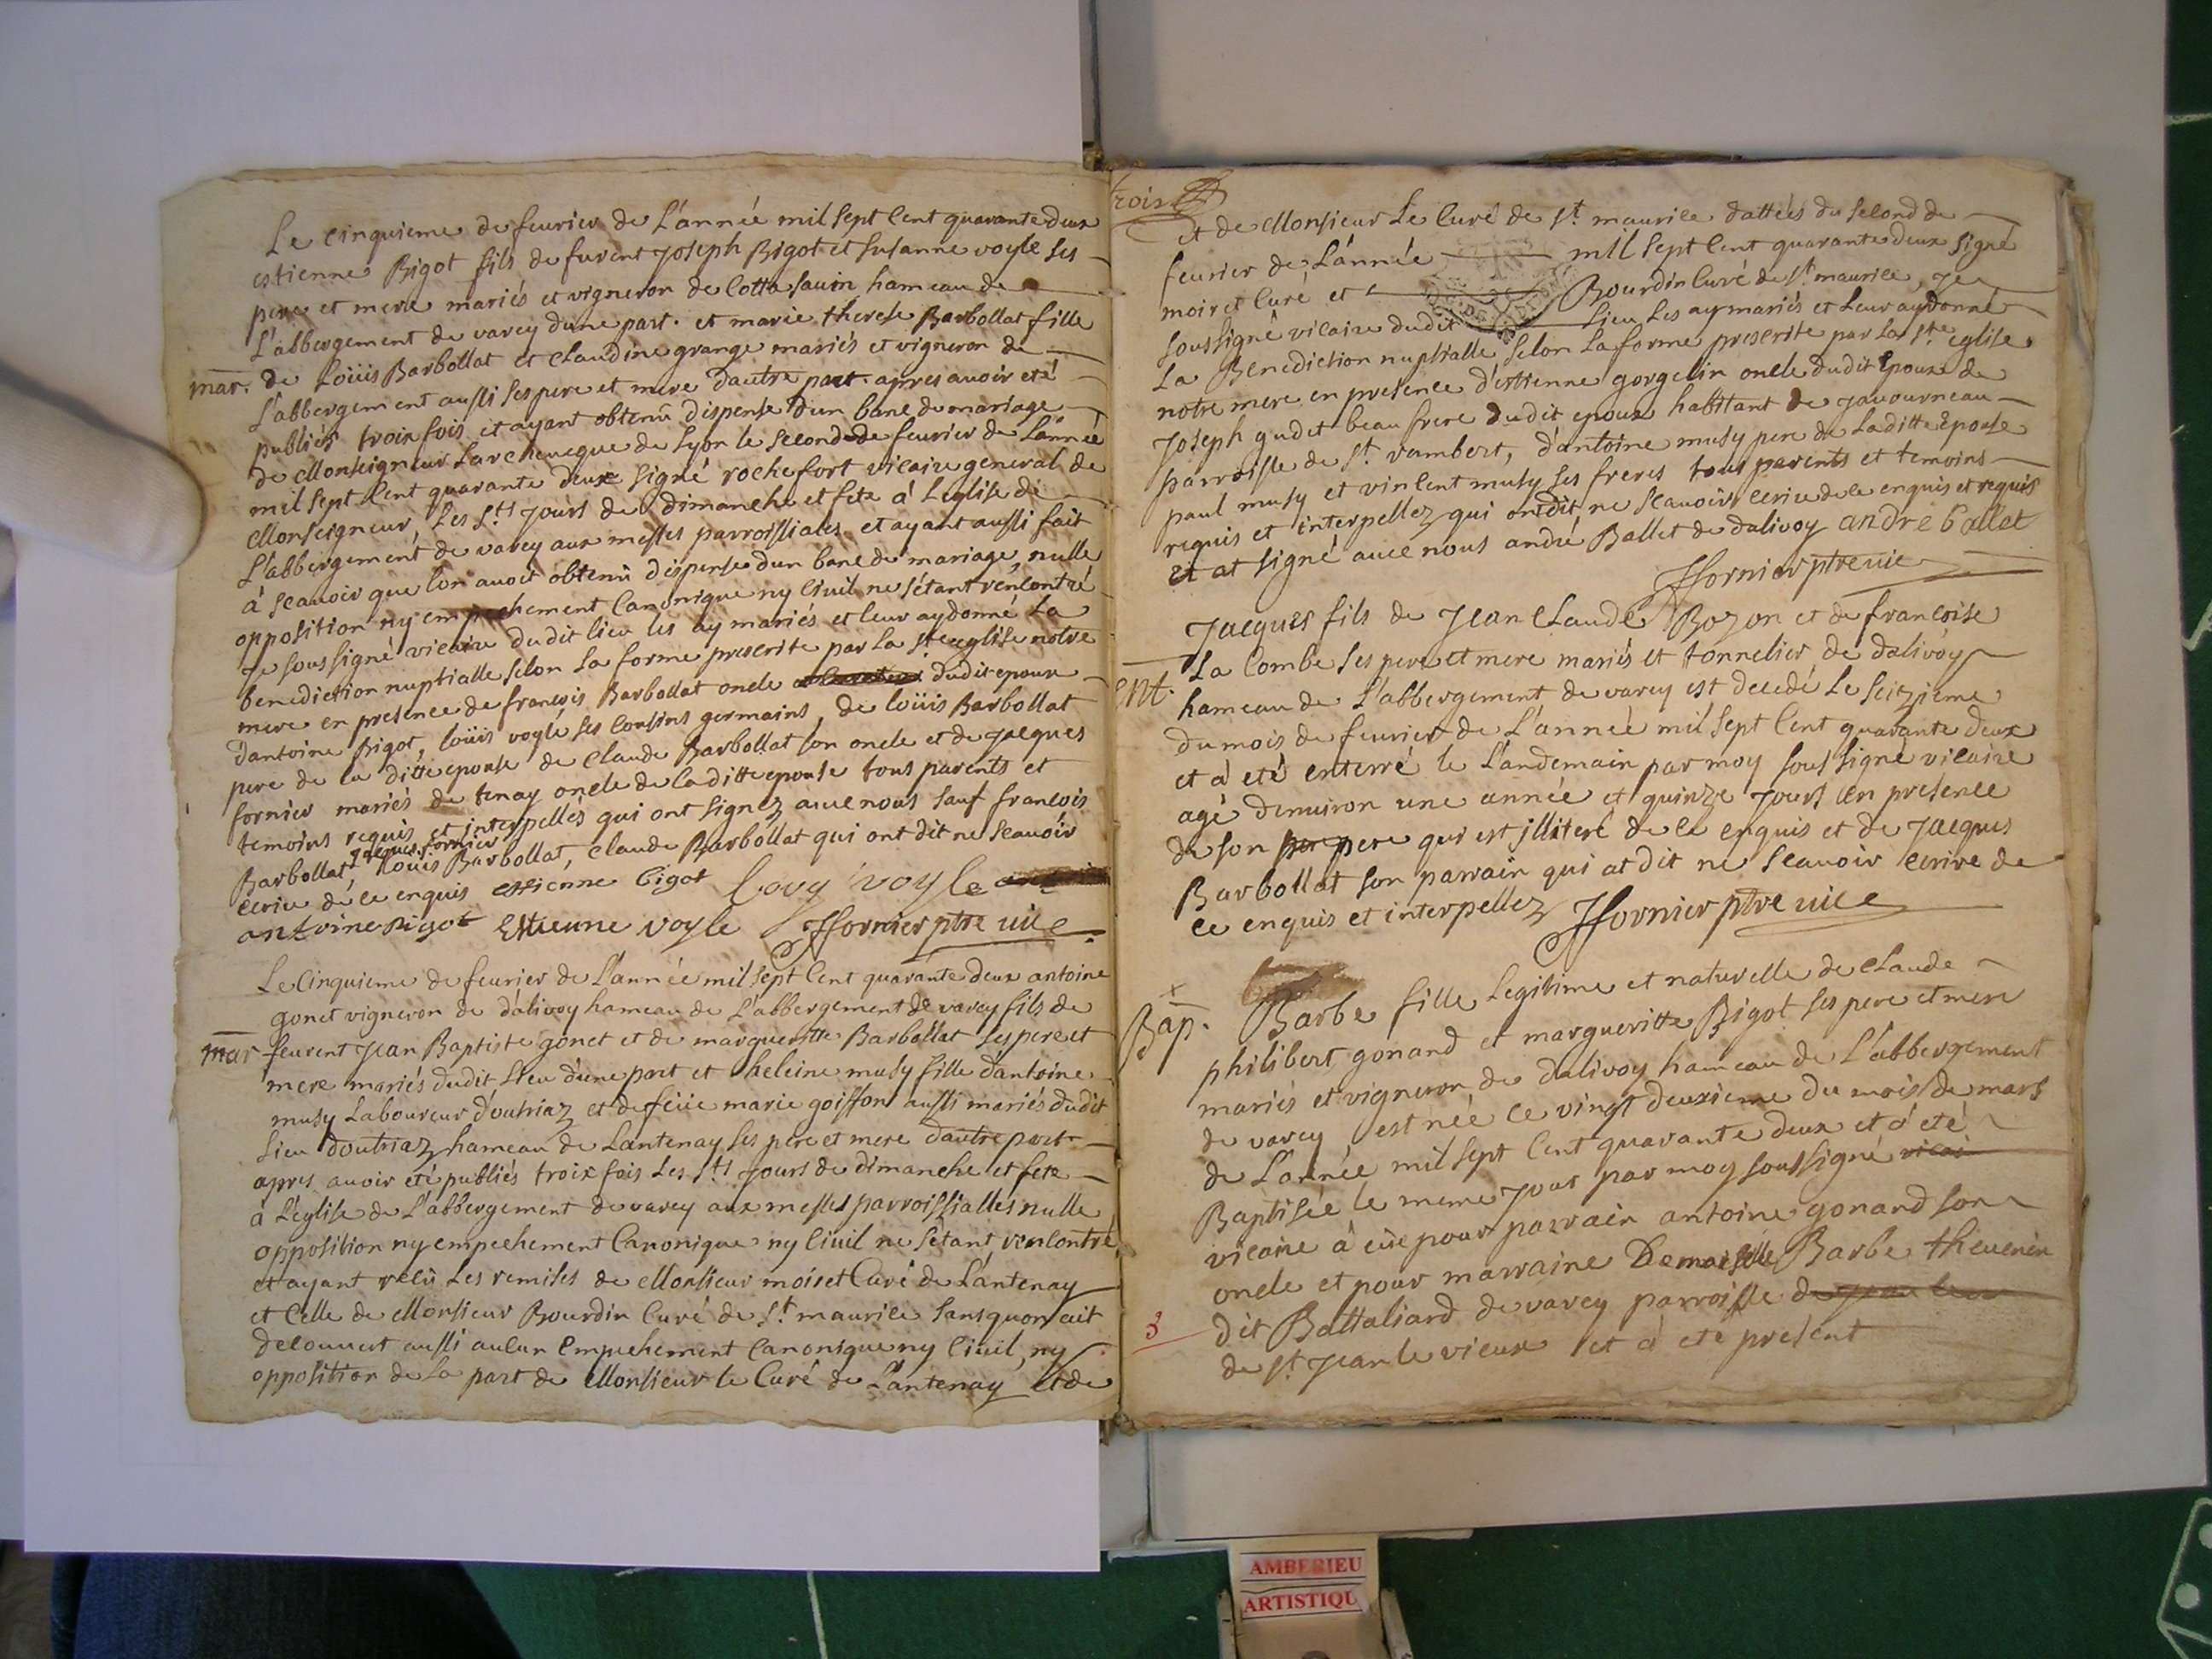 Le cinquieme de feurier de L'année mil sept Cent quarante deux
estienne Bigot fils de furent Joseph Bigot et susanne voyle ses
pere et mere mariés et vigneron de Cotta sauin hameau de
L'abbergement de varey d'une part. et marie therese Barbollat fille
mar. de Loüis Barbollat et Claudine grange mariés et vigneron de
L'abbergement aussi ses pere et mere d'autre part. apres auoir eté
publiés trois fois et ayant obtenû dispense d'un banc de mariage
de Monseigneur Larcheueque de Lyon le second de feurier de L'année
mil sept Cent quarante deux signé rochefort vicaire general de
Monseigneur, Les Sts Jours de dimanche et fete à L'eglise de
L'abbergement de varey aux messes parroissiales et ayant aussi fait
à scauoir que l'on auoit obtenû dispense d'un banc de mariage, nulle
opposition ny empechement Canonique ny Ciuil ne s'étant rencontré
Je soussigné vicaire dudit lieu les ay mariés et leur ay donné La
benediction nuptialle selon La forme prescrite par La Ste eglise notre
mere en presence de francois Barbollat oncle dudit epoux
d'antoine Bigot, Loüis voyle ses Cousins germains, de Loüis Barbollat
pere de la ditte epouse de Claude Barbollat son oncle et de Jacques
fornier mariés de tenay oncle de laditte epouse tous parents et
temoins requis et interpellés qui ont signez auec nous sauf francois
Jacques fornier
Barbollat, Loüis Barbollat, Claude Barbollat qui ont dit ne scauoir
ecrire de ce enquis estienne bigot Louy voyle
antoine Bigot Estienne voyle Ffornier ptre uic
Le Cinquieme de feurier de L'année mil sept Cent quarante deux antoine
gonet vigneron de d'alivoy hameau de L'abbergement de varey fils de
mar feurent Jean Baptiste gonet et de margueritte Barbollat ses pere et
mere mariés dudit Lieu d'une part et heleine musy fille d'antoine
musy Laboureur d'outriaz et de feüe marie goiffon aussi mariés dudit
Lieu d'outriaz hameau de Lantenay ses pere et mere d'autre part
apres auoir eté publiés troix fois Les Sts Jours de dimanche et fete
à L'eglise de L'abbergement de varey aux messes parroissialles nulle
opposition ny empechement Canonique ny Ciuil ne s'étant rencontré
et ayant recû Les remises de Monsieur moiret Curé de Lantenay
et Celle de Monsieur Bourdin Curé de St. maurice sans quon ait
decouuert aussi aucun Empechement Canonique ny Ciuil, ny
opposition de La part de Monsieur le Curé de Lantenay et de
trois
et de Monsieur Le Curé de St. maurice dattées du second de
feurier de L'année mil sept Cent quarante deux signé
moiret Curé et Bourdin Curé de St. maurice, Je
soussigné vicaire dudit Lieu Les ay mariés et Leur ay donné
La Benediction nuptialle selon La forme prescrite par La Ste eglise
notre mere en presence d'estienne gorgelin oncle dudit Epoux de
Joseph gudet beau frere dudit epoux habitant de Jauourneau
parroisse de St. rambert, d'antoine musy pere de Laditte Epouse
paul musy et vincent musy ses freres tous parents et temoins
requis et interpellez qui ont dit ne scauoir ecrire de ce enquis et requis
et at signé auec nous andré Ballet de dalivoy andre ballet
Ffornier ptre uic
Jacques fils de Jean Claude Bozon et de francoise
La Combe ses pere et mere mariés et tonnelier de dalivoy
ent. hameau de L'abbergement de varey est decedé Le seizieme
du mois de feurier de L'année mil sept Cent quarante deux
et à eté enterré le L'andemain par moy soussigné vicaire
agé d'enuiron une année et quinze Jours en presence
de son pere qui est jlliteré de ce enquis et de Jacques
Barbollat son parrain qui at dit ne scauoir ecrire de
ce enquis et interpellez Ffornier ptre uic
Bap. Barbe fille Legitime et naturelle de Claude
philibert gonand et margueritte Bigot ses pere et mere
mariés et vigneron de dalivoy hameau de L'abbergement
de varey est née le vingt deuxieme du mois de mars
de L'année mil sept Cent quarante deux et à eté
Baptisée le meme Jour par moy soussigné vicai
vicaire à eüe pour parrain antoine gonand son
oncle et pour marraine Demoiselle Barbe theuenin
3 dit Battaliard de varey parroisse
de St. Jean le vieux et à eté present
AMBERIEU
ARTISTIQU